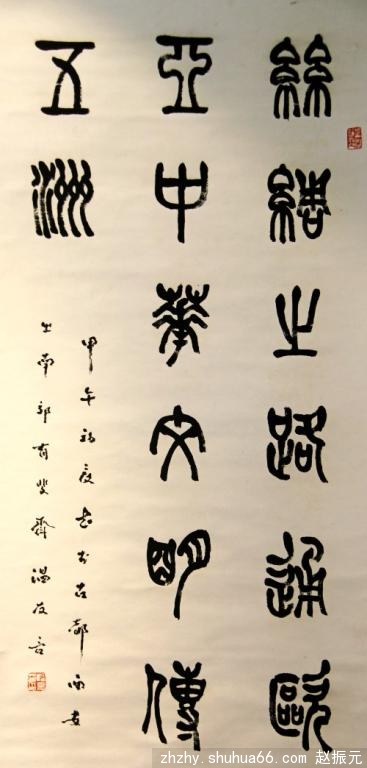 絲綢之路通歐
亞中華文明傳
五洲
甲午初夏於古都西安
之南郭有斐齋溫友言
zhzhy.shuhua66.com 赵振元